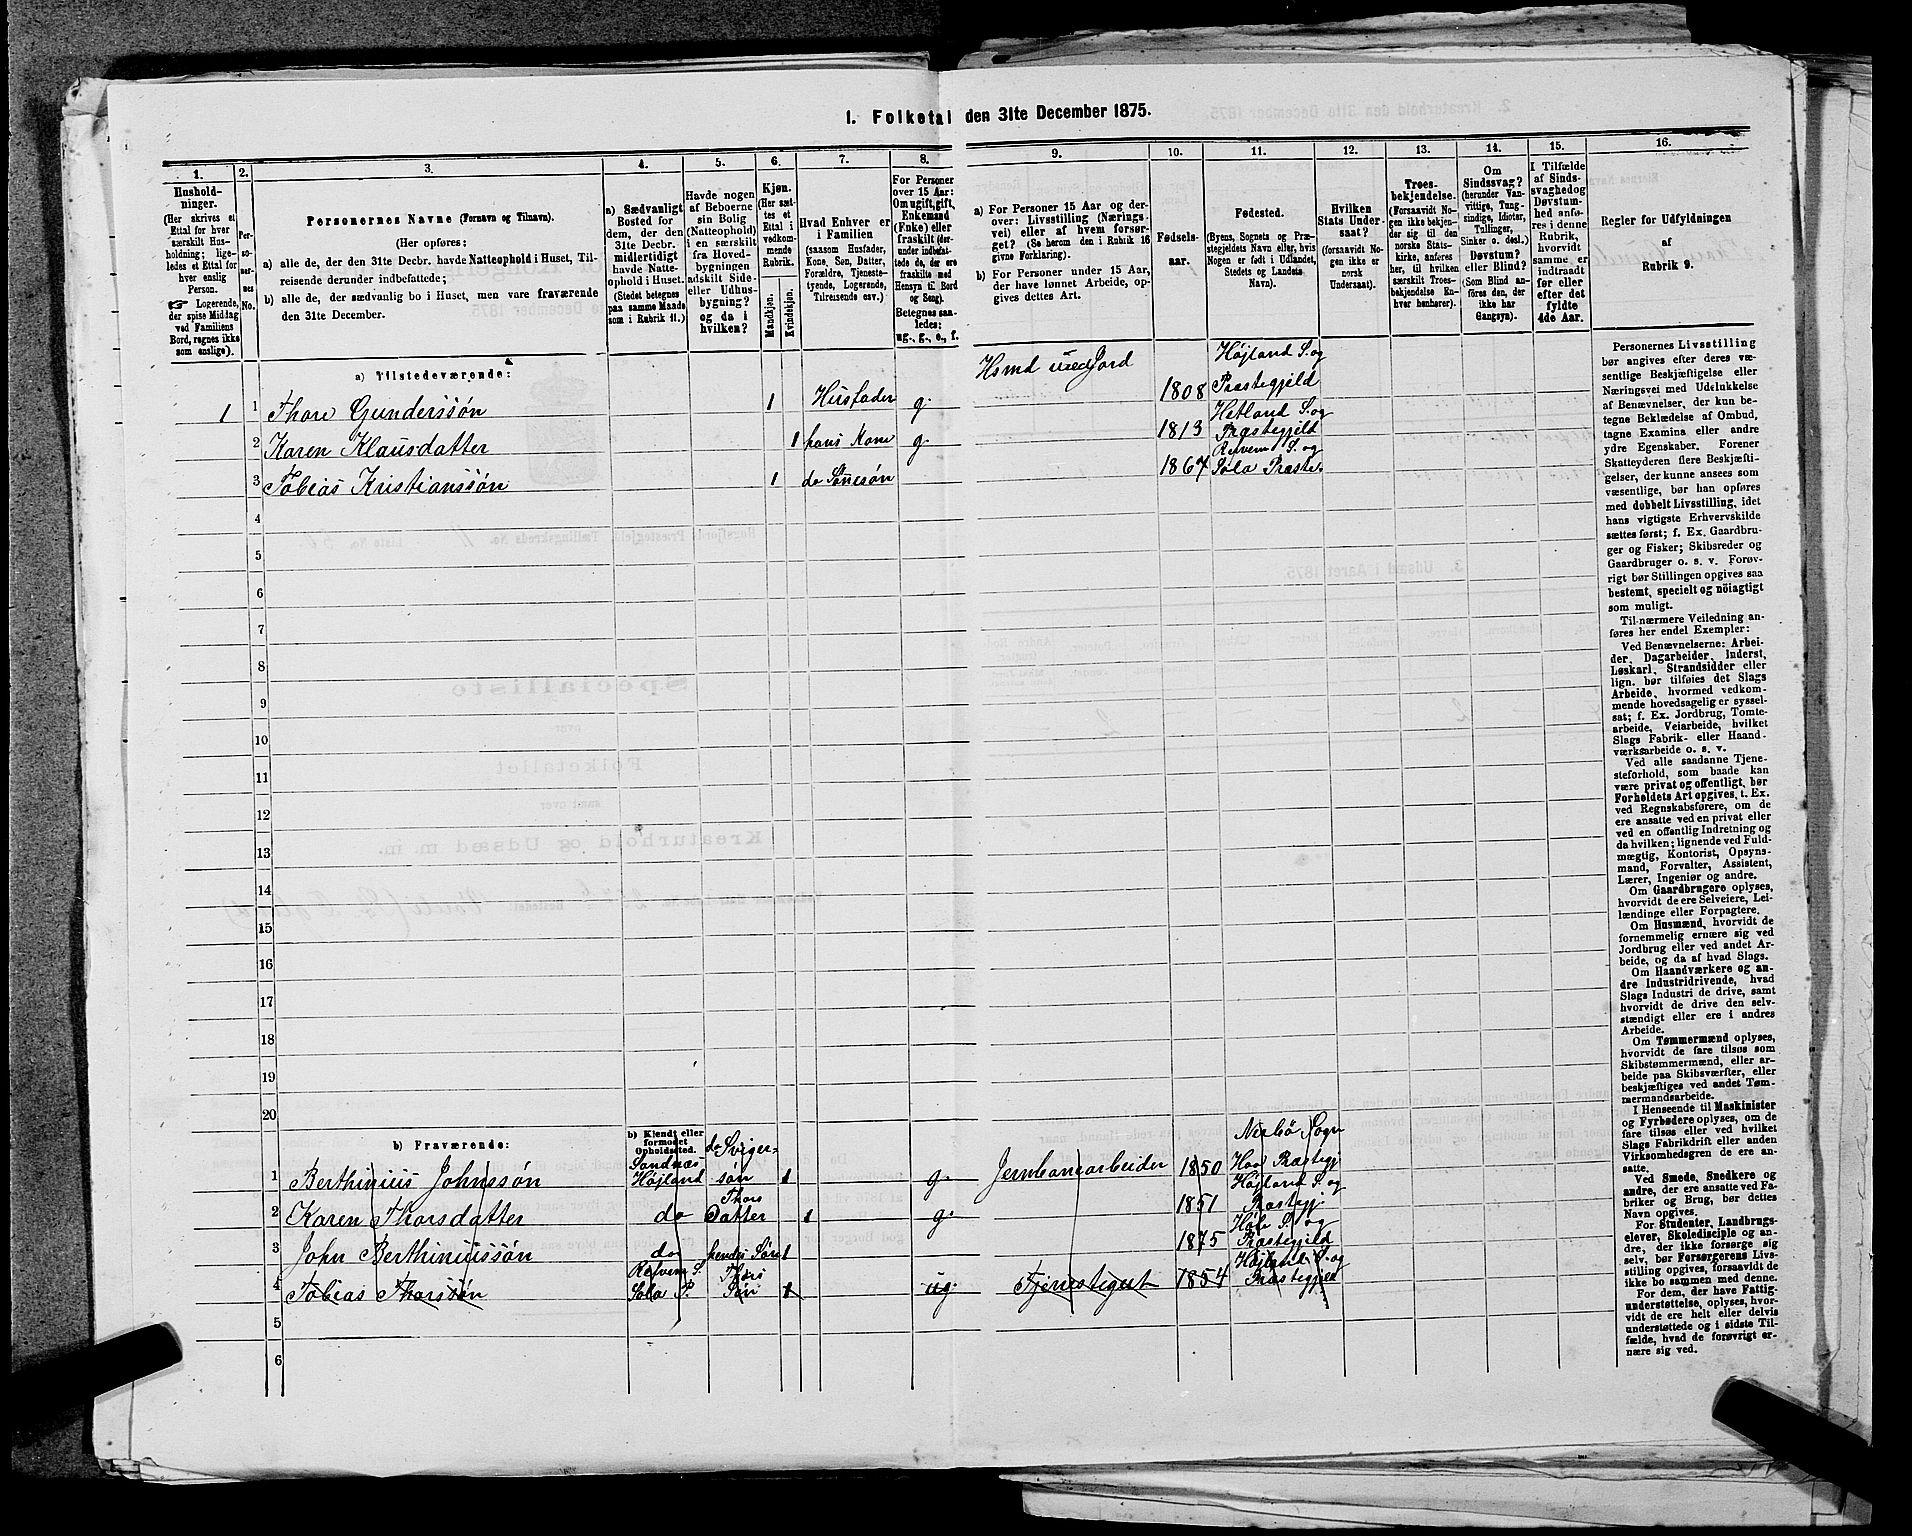 1. Folketal den 31te December 1875.
1.
Hushold-
ninger.
(Her skrives et
Ettal for hver
særskilt Hus-
holdning; lige-
ledes et Ettal for
hver enslig
Person.
☛ Logerende,
der spise Middag
ved Familiens
Bord, regnes ikke
som enslige).
2.
Per-
so-
ner-
nes
No.
3.
Personernes Navne (Fornavn og Tilnavn).
(Her opføres:
a) alle de, der den 31te Decbr. havde Natteophold i Huset, Til-
reisende derunder indbefattede;
b) alle de, der sædvanlig bo i Huset, men vare fraværende
den 31te December.
4.
a) Sædvanligt
Bosted for
dem, der den
31te Decbr.
midlertidigt
havde Natte-
ophold i Huset.
(Stedet betegnes
paa samme Maade
som i Rubrik 11.)
5.
Havde nogen
af Beboerne
sin Bolig
(Natteophold)
i en særskilt
fra Hoved-
bygningen
adskilt Side-
eller Udhus-
bygning?
og da i
hvilken?
6.
Kjøn.
(Her sæt-
tes et
Ettal i
vedkom-
mende
Rubrik.
Mandkjøn.
Kvindekjøn.
7.
Hvad Enhver er
i Familien
(saasom Husfader,
Kone, Søn, Datter,
Forældre, Tjeneste-
tyende, Logerende,
Tilreisende osv.)
8.
For Personer
over 15 Aar:
Om ugift, gift,
Enkemand
(Enke) eller
fraskilt (der-
under indbefat-
tede de, der ere
fraskilte med
Hensyn til Bord
og Seng).
Betegnes saa-
ledes:
ug., g., e., f.
9.
a) For Personer 15 Aar og der-
over: Livsstilling (Nærings-
vei) eller af hvem forsør-
get? (Se herom den i Rubrik 16
givne Forklaring).
b) For Personer under 15 Aar,
der have lønnet Arbeide, op-
gives dettes Art.
10.
Fødsels-
aar.
11.
Fødested.
(Byens, Sognets og Præ-
stegjeldets Navn eller, hvis
Nogen er født i Udlandet,
Stedets og Landets
Navn).
12.
Hvilken
Stats Under-
saat?
(forsaavidt No-
gen ikke er
norsk
Undersaat).
13.
Troes-
bekjendelse.
(Forsaavidt No-
gen ikke bekjen-
der sig til den
norske Stats-
kirke, anføres
her, til hvilken
særskilt Troes-
bekjendelse En-
hver henhører).
14.
Om
Sindssvag?
(herunder Van-
vittige, Tung-
sindige, Idioter,
Tullinger,
Sinker o. desl.)
Døvstum?
eller Blind?
(Som Blind an-
føres den, der
ikke har
Gangsyn).
15.
I Tilfælde
af Sinds-
svaghed og
Døvstum-
hed anfø-
res i denne
Rubrik,
hvorvidt
samme er
indtraadt
før eller
efter det
fyldte
4de Aar.
16.
Regler for Udfyldningen
af
Rubrik 9.
a) Tilstedeværende:
1 1 Thore Gunderssön 1 Husfader g. Hsmd med Jord 1808 Højland S. og Præstegjeld
2 Karen Klausdatter 1 hans Kone g. 1813 Hetland S. og Præstegjeld
3 Tobias Kristianssön 1 do Sönesön 1867 S. og Sola Præste.
4
5
6
7
8
9
10
11
12
13
14
15
16
17
18
19
20
b) Fraværende:
b) Kjendt eller
formodet
Opholdssted.
1 Berthinius Johnssön Sandnæs Højland do Svigersön 1 g. Jernbanearbeider 1850 Nærbö Sogn Haa Præstegj
2 Karen Thorsdatter do Thors Datter 1 g. 1851 Højland S. og Præstegj
3 John Berthiniussön do hendes Sön 1 1875 Höle S. og Præstegjeld
4 Tobias Thorssön S. Sola P. Thors Sön 1 ug. Tjenestegut 1854 Højland S. og Præstegjeld
5
6
Personernes Livsstilling
bør angives efter deres væ-
sentlige Beskjæftigelse eller
Næringsvei med Udelukkelse
af Benævnelser, der kun be-
tegne Beklædelse af Ombud,
tagne Examina eller andre
ydre Egenskaber. Forener
Skatteyderen flere Beskjæfti-
gelser, der kunne ansees som
væsentlige, bør han opføres
med dobbelt Livsstilling, idet
hans vigtigste Erhvervskilde
sættes først; f. Ex. Gaardbru-
ger og Fisker; Skibsreder og
Gaardbruger o. s. v. Forøv-
rigt bør Stillingen opgives saa
bestemt, specielt og nöiagtigt
som muligt.
Til nærmere Veiledning an-
føres her endel Exempler:
Ved Benævnelserne: Arbei-
der, Dagarbeider, Inderst,
Løskarl, Strandsidder eller
lign. bør tilføies det Slags
Arbeide, hvormed vedkom-
mende hovedsagelig er syssel-
sat; f. Ex. Jordbrug, Tomte-
arbeide, Veiarbeide, hvilket
Slags Fabrik- eller Haand-
værksarbeide o. s. v.
Ved alle saadanne Tjene-
steforhold, som baade kan
være privat og offentligt, bør
Forholdets Art opgives, t. Ex.
ved Regnskabsførere, om de
ere ansatte ved en privat eller
ved en offentlig Indretning og
da hvilken; lignende ved Fuld-
mægtig, Kontorist, Opsyns-
mand, Forvalter, Assistent,
Lærer, Ingeniør og andre.
Om Gaardbrugere oplyses,
hvorvidt de ere Selveiere, Lei-
lændinge eller Forpagtere.
Om Husmænd, hvorvidt de
fornemmelig ernære sig ved
Jordbrug eller ved andet Ar-
beide, og da af hvad Slags.
Om Haandværkere og an-
dre Industridrivende, hvad
Slags Industri de drive, samt
hvorvidt de drive den selv-
stændigt eller ere i andres
Arbeide.
Om Tømmermænd oplyses,
hvorvidt de fare tilsøs som
Skibstømmermænd, eller ar-
beide paa Skibsværfter, eller
beskjæftiges ved andet Tøm-
mermandsarbeide.
I Henseende til Maskinister
og Fyrbødere oplyses, om de
fare tilsøs eller ved hvilket
Slags Fabrikdrift eller anden
Virksomhedsgren de ere an-
satte.
Ved Smede, Snedkere og
andre, der ere ansatte ved Fa-
briker og Brug, bør dettes
Navn opgives.
For Studenter, Landbrugs-
elever, Skoledisciple og an-
dre, der ikke forsørge sig
selv, bør Forsørgerens Livs-
stilling opgives, forsaavidt de
ikke bo sammen med denne.
For dem, der have Fattig-
understøttelse, oplyses, hvor-
vidt de ere helt eller delvis
understøttede og i sidste Til-
fælde, hvad de forøvrigt er-
nære sig ved.